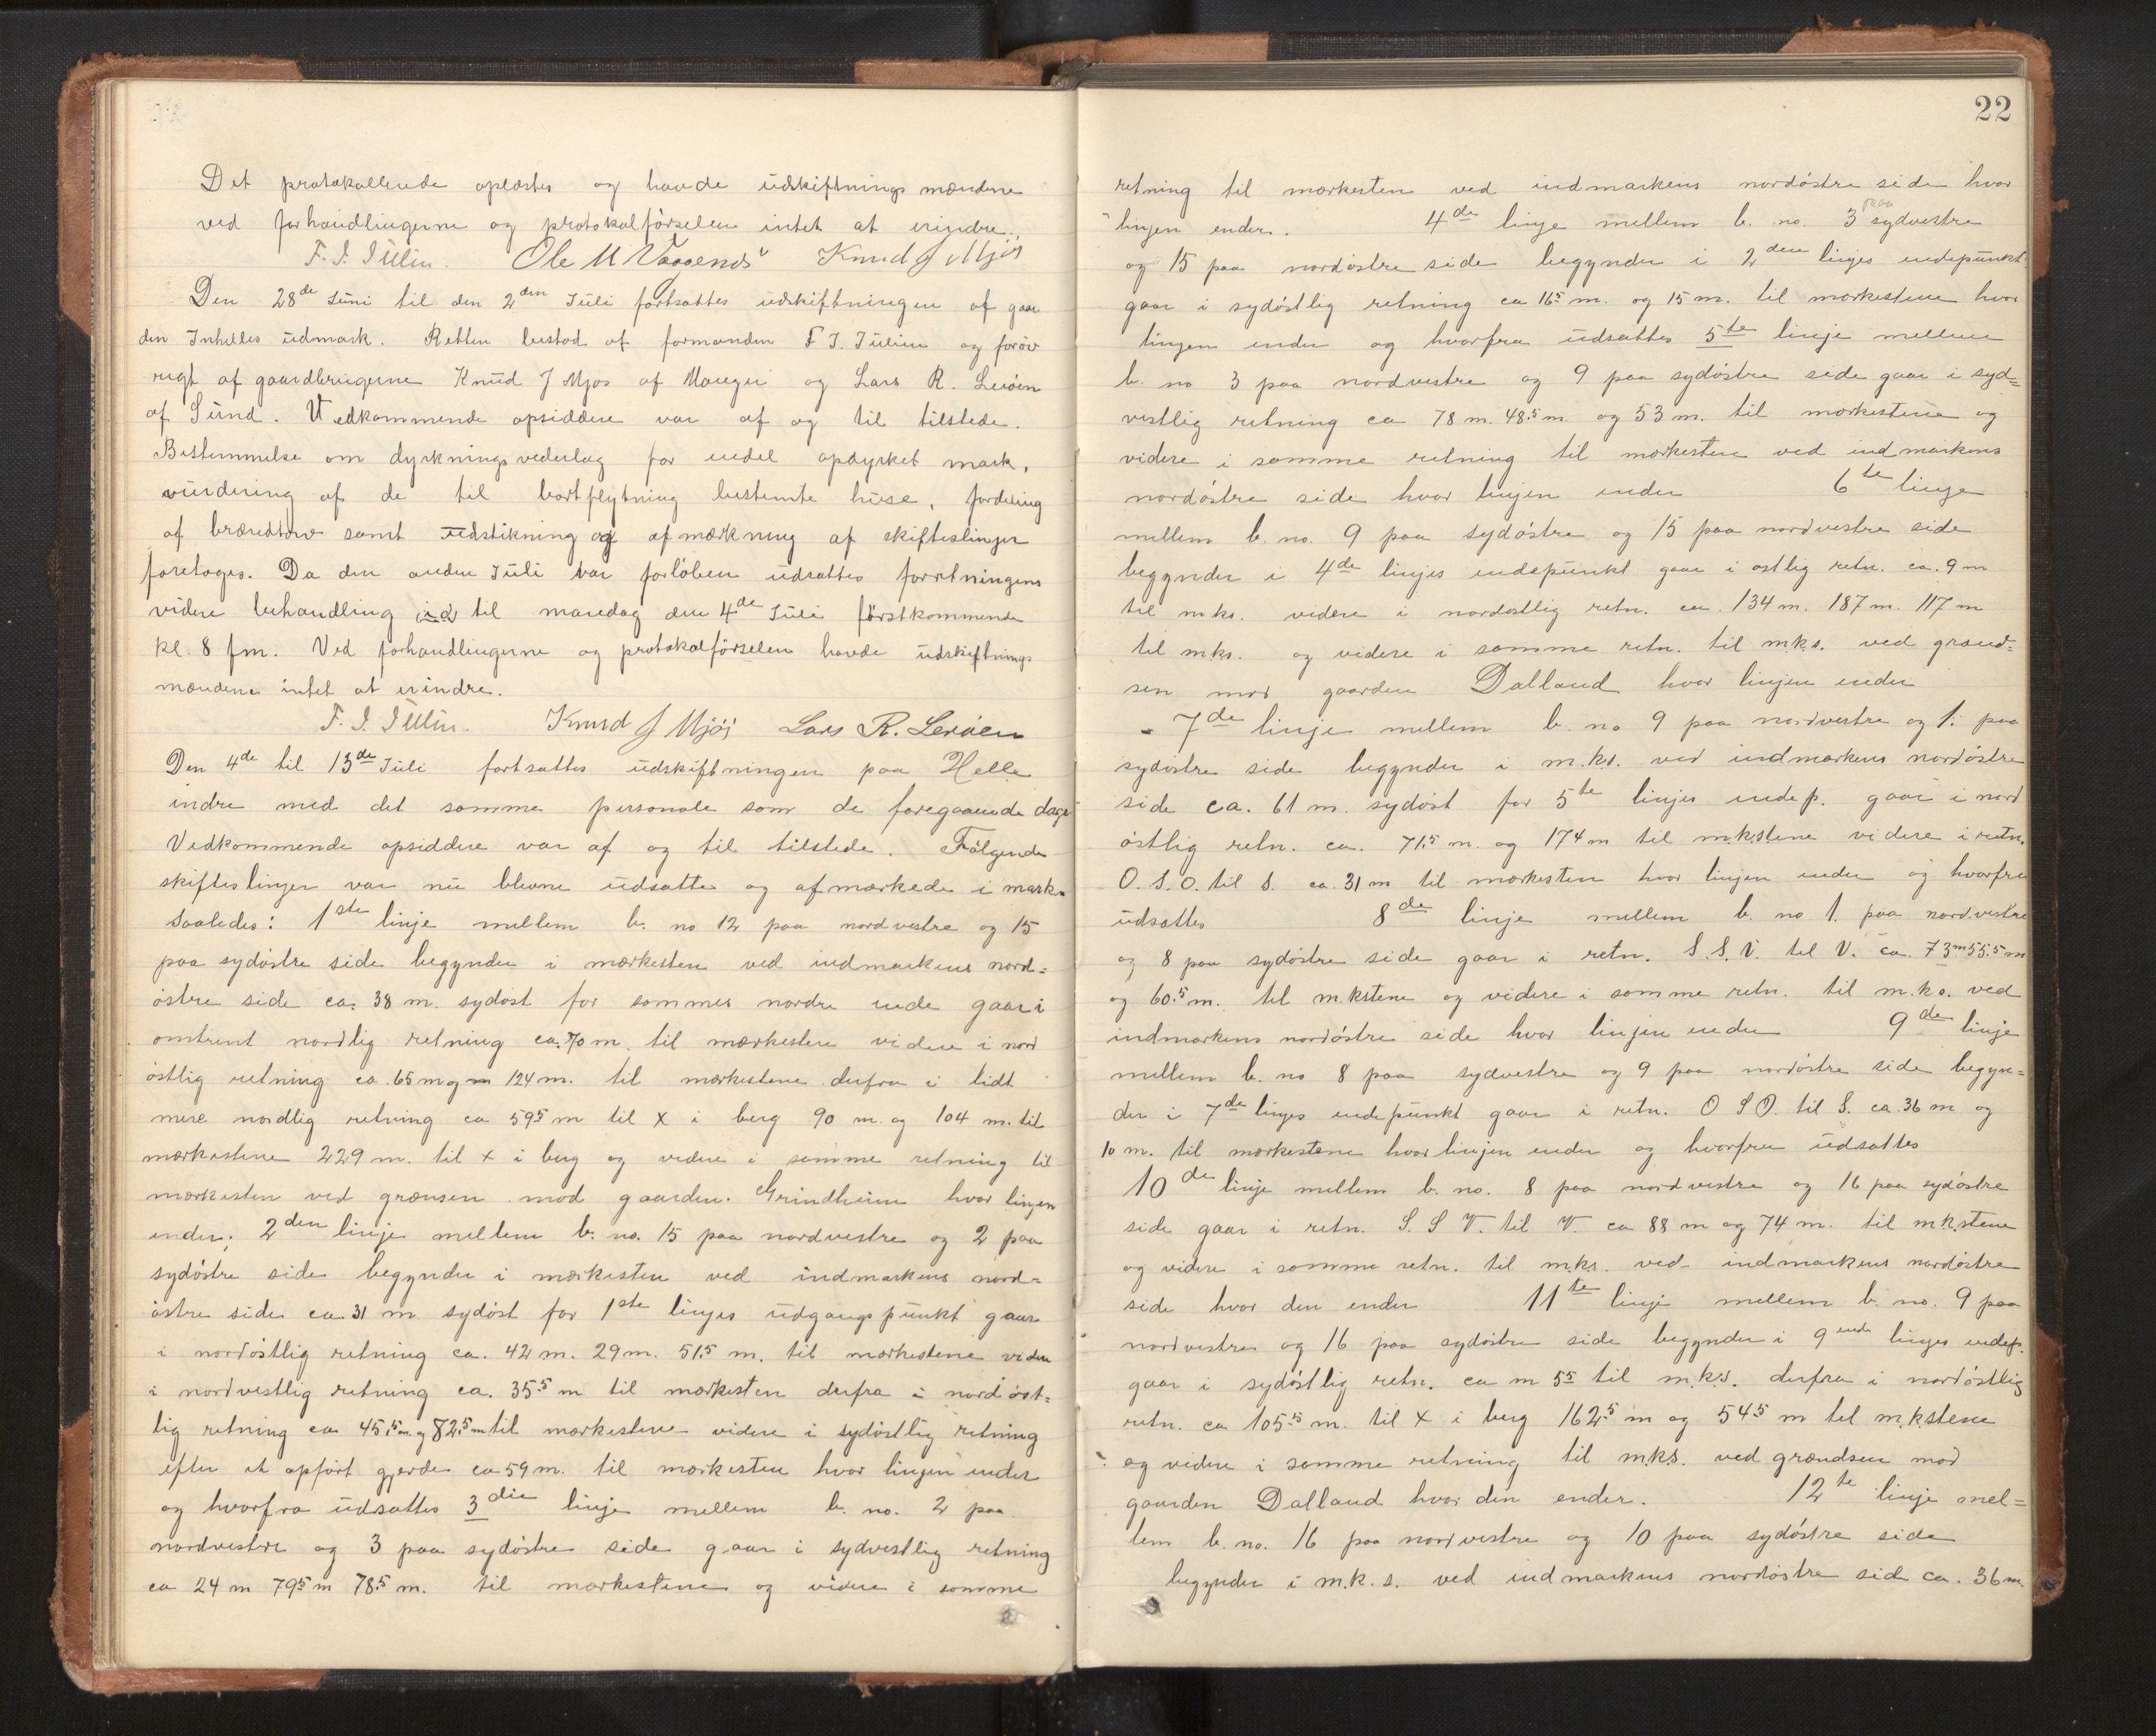 Det protokollerede oplæstes og havde udskiftningsmændene
ved forhandlingerne og protokolførselen intet at erindre.
F. I. Iulin. Ole M Vaagenes Knud J Mjøs
Den 28de Iuni til den 2den Iuli fortsattes udskiftningen af gaar
den Inhelles udmark. Retten bestod af formanden F I. Iulin og forøv
rigt af gaardbrugerne Knud J Mjos af Manger og Lars R. Lerøen
af Sund. Vedkommende opsiddere var af og til tilstede.
Bestemmelse om dyrkningsvederlag for endel opdyrket mark,
vurdering af de til bortflytning bestemte huse, fordeling
af brændtorv samt udstikning og afmærkning af skifteslinjer
foretoges. Da den anden Iuli var forløben udsattes forretningens
videre behandling ind til mandag den 4de Iuli førstkommende
kl. 8 fm. Ved forhandlingerne og protokolførselen havde udskiftnings
mændene intet at erindre.
F. I. Iulin. Knud J Mjös Lars R. Leröen
Den 4de til 13de Iuli fortsattes udskiftningen paa Helle
indre med det samme personale som de foregaaende dage
Vedkommende opsiddere var af og til tilstede. Følgende
skifteslinjer var nu blevne udsatte og afmærkede i marken
saaledes: 1ste linje mellem b. no 12 paa nordvestre og 15
paa sydøstre side begynder i mærkesten ved indmarkens nord=
østre side ca. 38 m. sydøst for sammes nordre ende gaar i
omtrent nordlig retning ca. 70 m. til mærkesten videre i nord
østlig retning ca. 65 m og 124 m. til mærkestene derfra i lidt
mere nordlig retning ca 59.5 m til x i berg 90 m. og 104 m. til
mærkestene 229 m. til x i berg og videre i samme retning til
mærkesten ved grænsen mod gaarden Grindheim hvor linjen
ender; 2den linje mellem b. no. 15 paa nordvestre og 2 paa
sydøstre side begynder i mærkesten ved indmarkens nord=
østre side ca. 31 m sydøst for 1ste linjes udgangspunkt gaar
i nordøstlig retning ca. 42 m. 29 m. 51.5 m. til mærkestene videre
i nordvestlig retning ca. 35.5 m til mærkesten derfra i nordøst=
lig retning ca 45.5 m. og 82.5 m til mærkestene videre i sydøstlig retning
efter et opført gjerde ca 59 m. til mærkesten hvor linjen ender
og hvorfra udsattes 3die linje mellem b. no. 2 paa
nordvestre og 3 paa sydøstre side gaar i sydvestlig retning
ca 24 m 79.5 m 78.5 m. til mærkestene og videre i samme
22
retning til mærkesten ved indmarkens nordøstre side hvor
linjen ender. 4de linje mellem b. no. 3 paa sydvestre
og 15 paa nordøstre side begynder i 2den linjes endepunkt
gaar i sydøstlig retning ca 16.5 m. og 15 m. til mærkestene hvor
linjen ender og hvorfra udsattes 5te linje mellem
b. no 3 paa nordvestre og 9 paa sydøstre side gaar i syd=
vestlig retning ca 78 m. 48.5 m. og 53 m. til mærkestene og
videre i samme retning til mærkesten ved indmarkens
nordøstre side hvor linjen ender 6te linje
mellem b. no. 9 paa sydøstre og 15 paa nordvestre side
begynder i 4de linjes endepunkt gaar i østlig retn. ca. 9 m
til mks. videre i nordøstlig retn. ca. 134 m. 187 m. 117 m
til mks. og videre i samme retn. til mks. ved grænd=
sen mod gaarden Dalland hvor linjen ender
7de linje mellem b. no 9 paa nordvestre og 1. paa
sydøstre side begynder i m.ks. ved indmarkens nordøstre
side ca. 61 m. sydøst for 5te linjes endep. gaar i nord
østlig retn. ca. 71.5 m. og 174 m til mkstene videre i retn.
O. S. O. til S. ca. 31 m til mærkesten hvor linjen ender og hvorfra
udsattes 8de linje mellem b. no 1. paa nordvestre
og 8 paa sydøstre side gaar i retn. S. S. V. til V. ca. 73 m 55.5 m
og 60.5 m. til m.kstene og videre i samme retn. til m.ks. ved
indmarkens nordøstre side hvor linjen ender 9de linje
mellem b. no 8 paa sydvestre og 9 paa nordøstre side begyn=
der i 7de linjes endepunkt gaar i retn. O S O. til S. ca. 36 m og
10 m. til mærkestene hvor linjen ender og hvorfra udsattes
10de linje mellem b. no. 8 paa nordvestre og 16 paa sydøstre
side gaar i retn. S. S V. til V. ca 88 m og 74 m. til mkstene
og videre i samme retn. til mks. ved indmarkens nordøstre
side hvor den ender 11te linje mellem b. no. 9 paa
nordvestre og 16 paa sydøstre side begynder i 9ende linjes endep.
gaar i sydøstlig retn. ca m 55 til m.ks. derfra i nordøstlig
retn. ca 105.5 m. til x i berg 162.5 m og 54.5 m til m.kstene
og videre i samme retning til mks. ved grændsen mod
gaarden Dalland hvor den ender. 12te linje mel=
lem b. no. 16 paa nordvestre og 10 paa sydøstre side
begynder i m.k.s. ved indmarkens nordøstre side ca. 36 m.